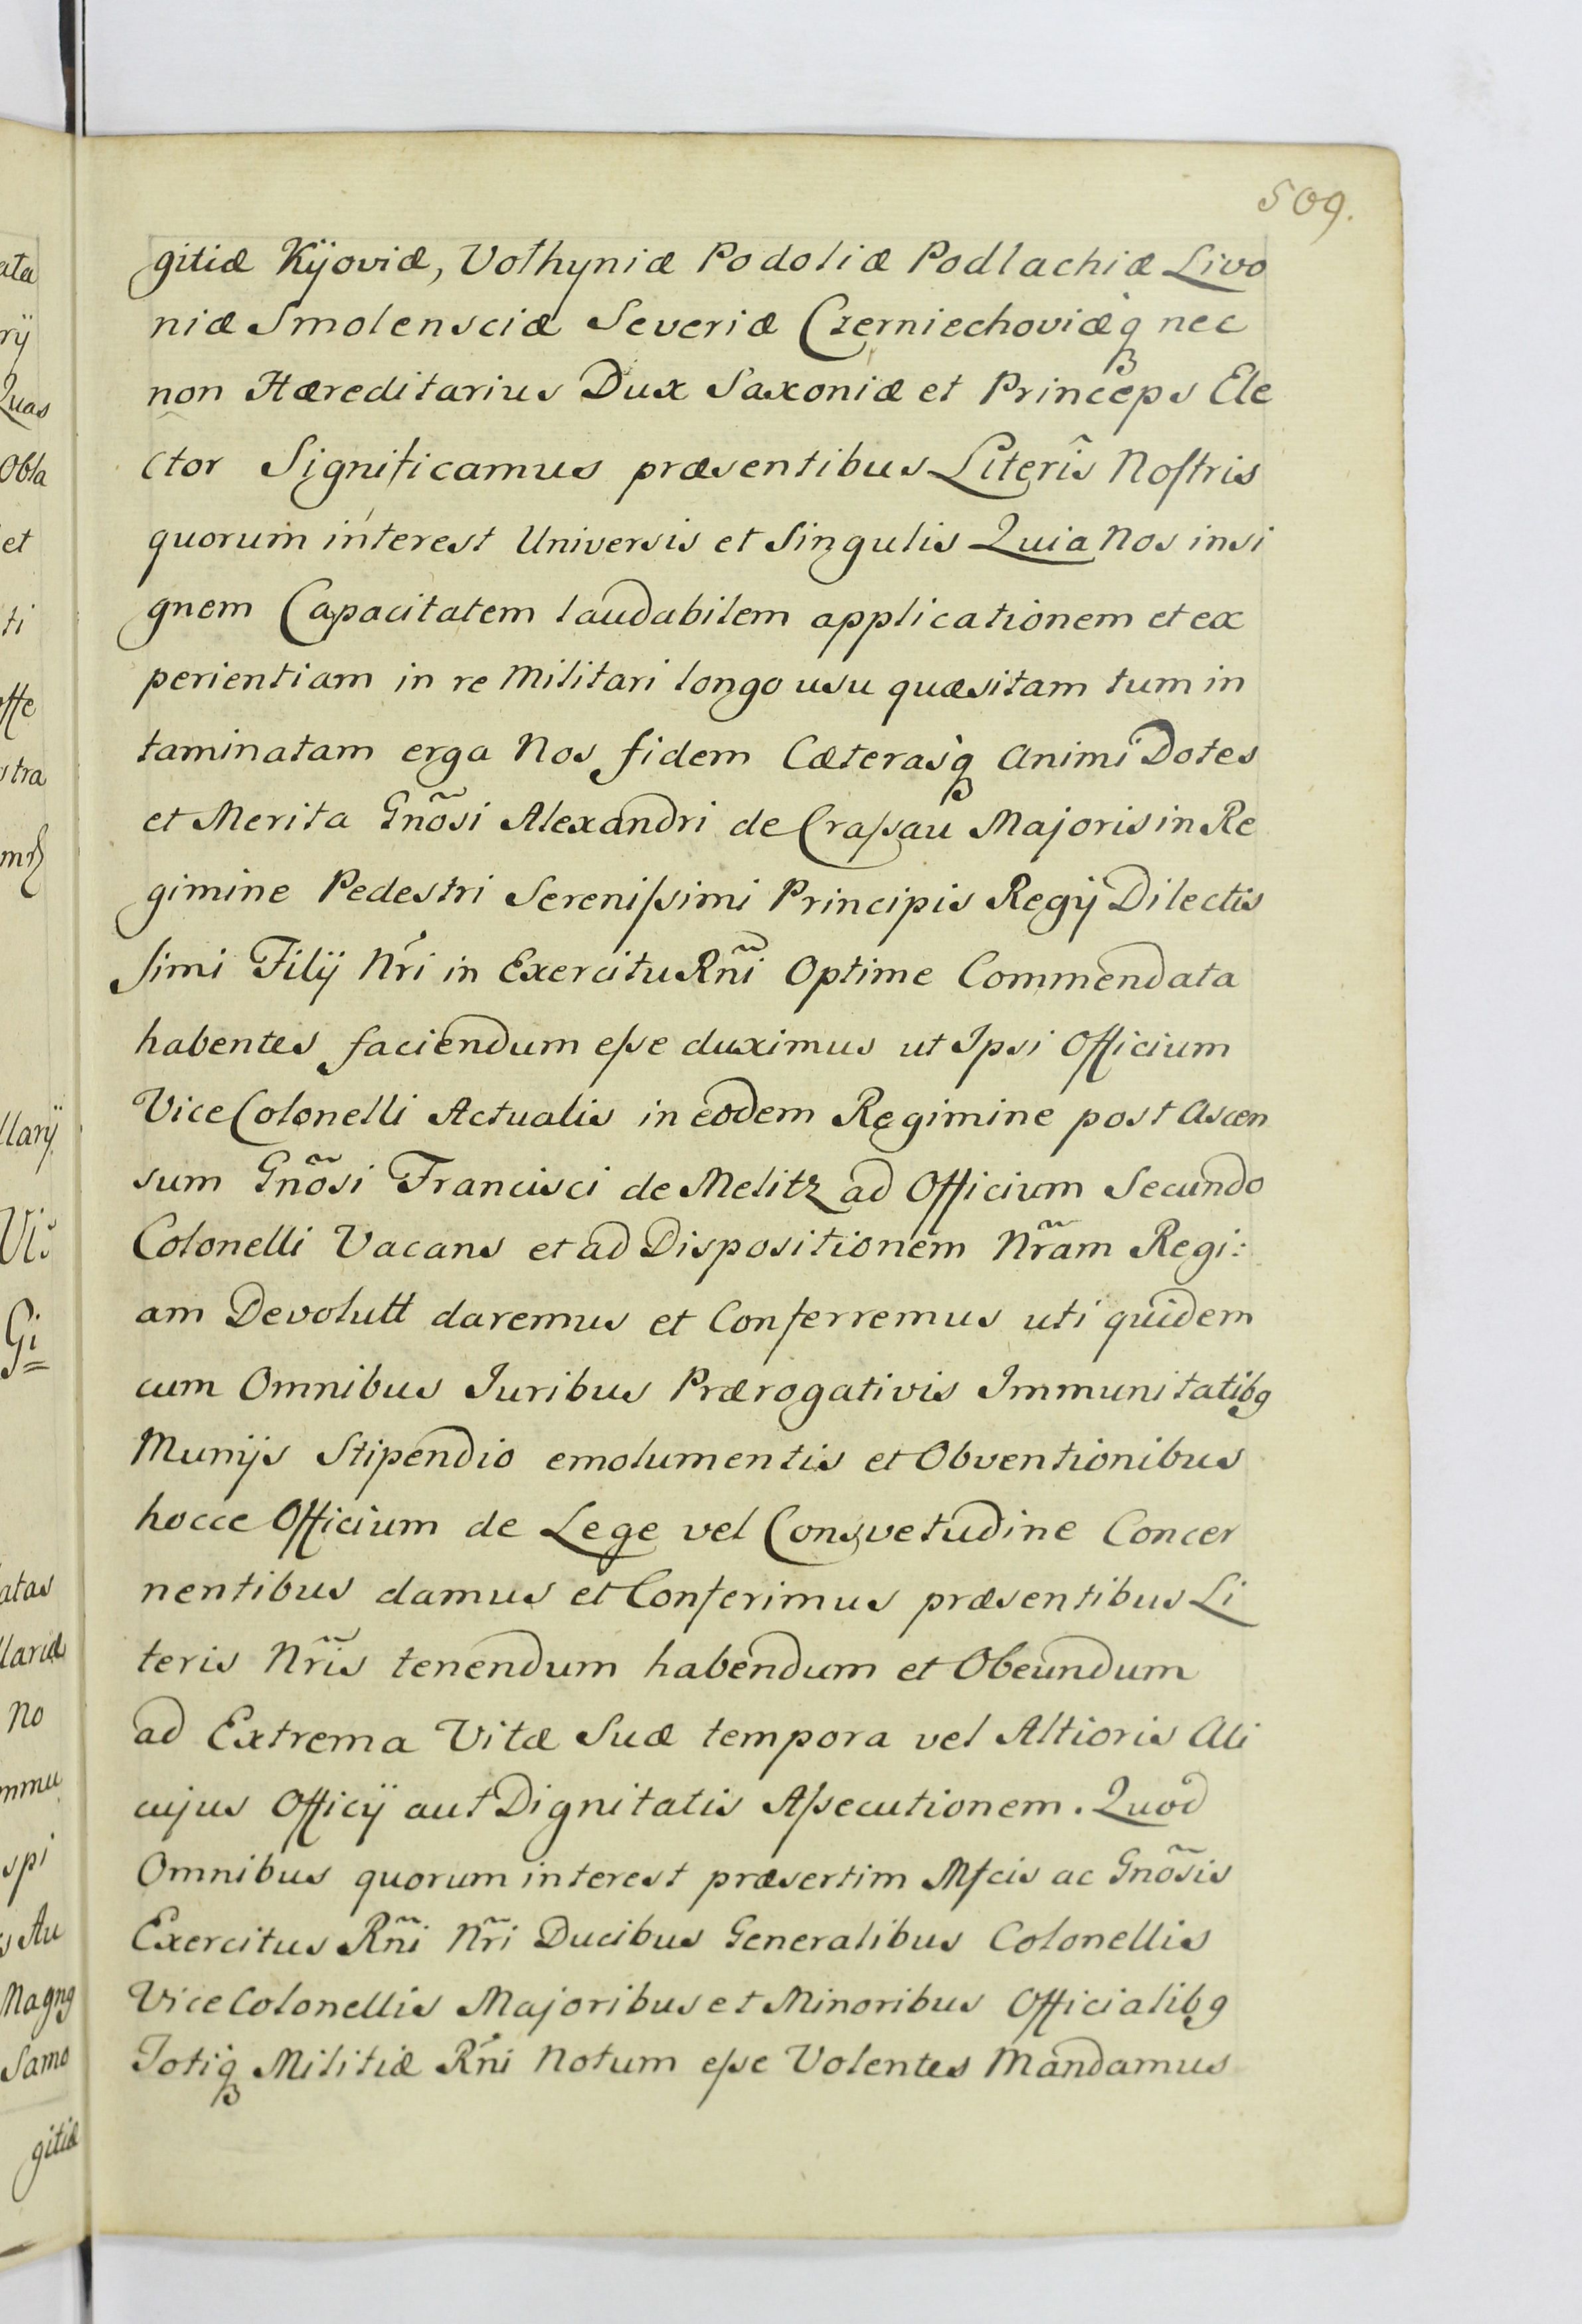 509.
gitiæ Kijoviæ, Volhyniæ Podoliæ Podlachiæ Livo
niæ Smolensciæ Severiæ Czerniechoviæq́ nec
non Hæreditarius Dux Saxoniæ et Princeps Ele
ctor Significamus præsentibus Literis Nostris
quorum interest Universis et Singulis Quia Nos insi
gnem Capacitatem laudabilem applicationem et ex
perientiam in re Militari longo usu quæsitam tum in
taminatam erga Nos fidem Cæterasq́ Animi Dotes
et Merita Gnõsi Alexandri de Crassau Majoris in Re
gimine Pedestri Serenissimi Principis Regij Dilectis
simi Filij Nri in Exercitu Rñi Optime Commendata
habentes faciendum esse duximus ut Ipsi Officium
Vice Colonelli Actualis in eodem Regimine post Ascen
sum Gnõsi Francisci de Melitz ad Officium Secundo
Colonelli Vacans et ad Dispositionem Nr̃am Regi:
am Devolutt daremus et Conferremus uti quidem
cum Omnibus Juribus Prærogativis Immunitatibg
Munijs Stipendio emolumentis et Obventionibus
hocce Officium de Lege vel Consvetudine Concer
nentibus damus et Conferimus præsentibus Li
teris Nr̃is tenendum habendum et Obeundum
ad Extrema Vitæ Suæ tempora vel Altioris Ali
cujus Officij aut Dignitatis Assecutionem. Quod
Omnibus quorum interest præsertim Mfcis ac Gnõsis
Exercitus Rñi Nr̃i Ducibus Generalibus Colonellis
Vice Colonellis Majoribus et Minoribus Officialibg
Totiq́ Militiæ Rńi Notum esse Volentes Mandamus